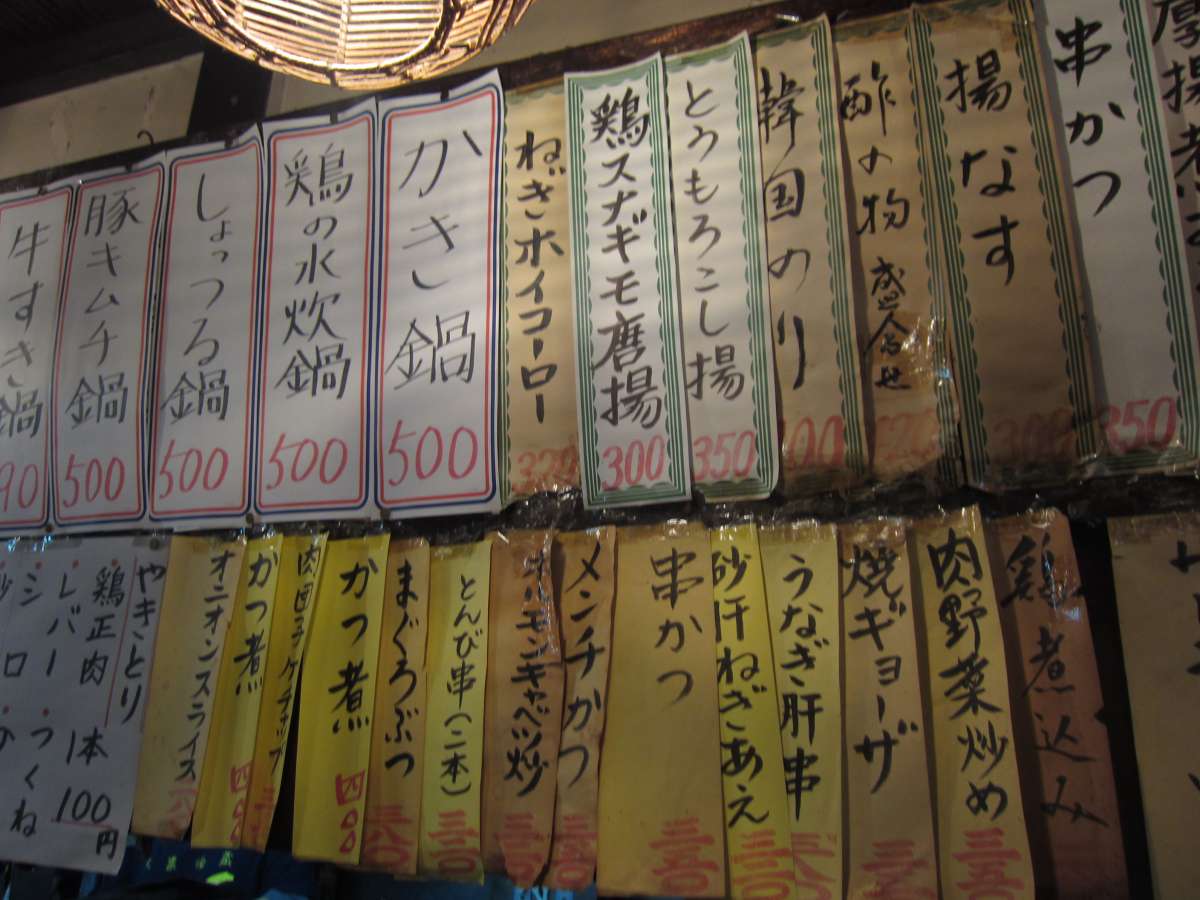 串かつ
350
揚なす
300
酢の物盛合せ
韓国のり
とうもろこし揚
350
鶏スナギモ唐揚
300
ねぎホイコーロー
320
かき鍋
500
鶏の水炊鍋
500
しょっつる鍋
500
豚キムチ鍋
500
牛すき鍋
90
鶏煮込み
肉野菜炒め
三五〇
焼ギョーザ
うなぎ肝串
砂肝ねぎあえ
三二〇
串かつ
三五〇
メンチかつ
ホルモンキャベツ炒
とんび串(二本)
三二〇
まぐろぶつ
三八〇
かつ煮
四〇〇
かつ煮
四〇〇
オニオンスライス
やきとり
鶏正肉 1本100円
レバー・つくね
シロ